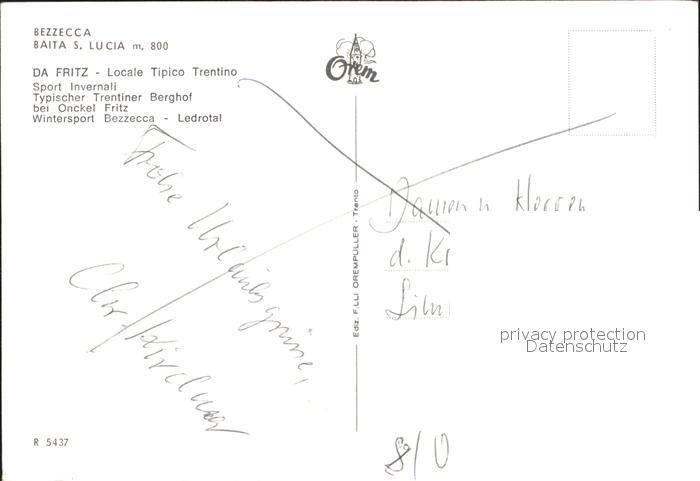 BEZZECCA
BAITA S. LUCIA m. 800
DA FRITZ - Locale Tipico Trentino
Sport Invernali
Typischer Trentiner Berghof
bei Onckel Fritz
Wintersport Bezzecca - Ledrotal
Orem
Frohe Urlaubsgrüße,
Chr. Kirchner
Ediz. F.LLI OREMPULLER - Trento
Damen u Herren
d. Kr
privacy protection
Datenschutz
R 5437